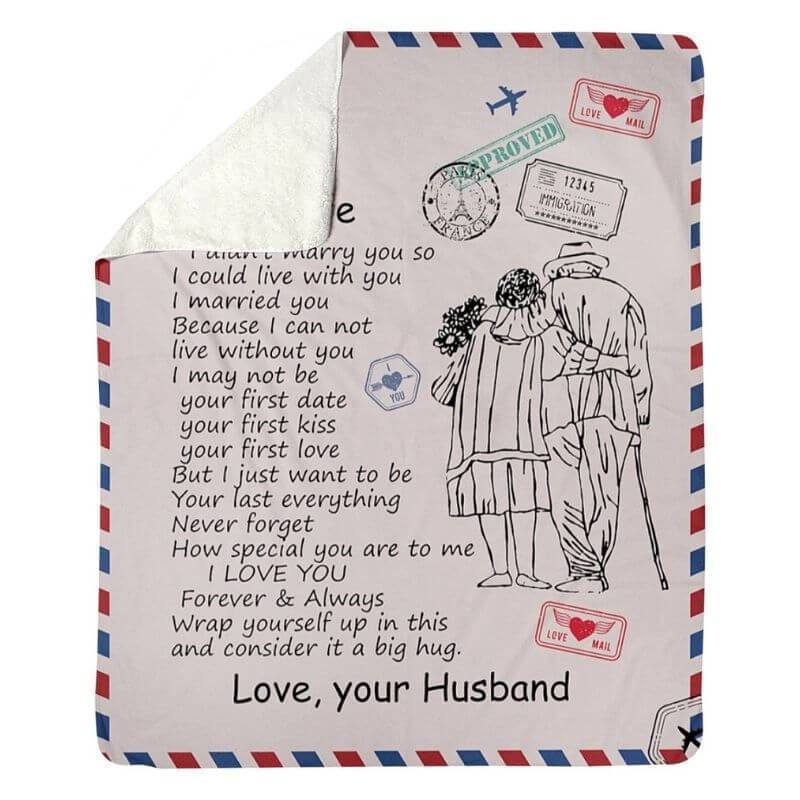 LOVE MAIL
APPROVED
PARIS
FRANCE
12345
IMMIGRATION
***********
e
I didn't marry you so
I could live with you
I married you
Because I can not
live without you
I may not be
your first date
your first kiss
your first love
But I just want to be
Your last everything
Never forget
How special you are to me
I LOVE YOU
Forever & Always
Wrap yourself up in this
and consider it a big hug.
Love, your Husband
I
YOU
LOVE MAIL